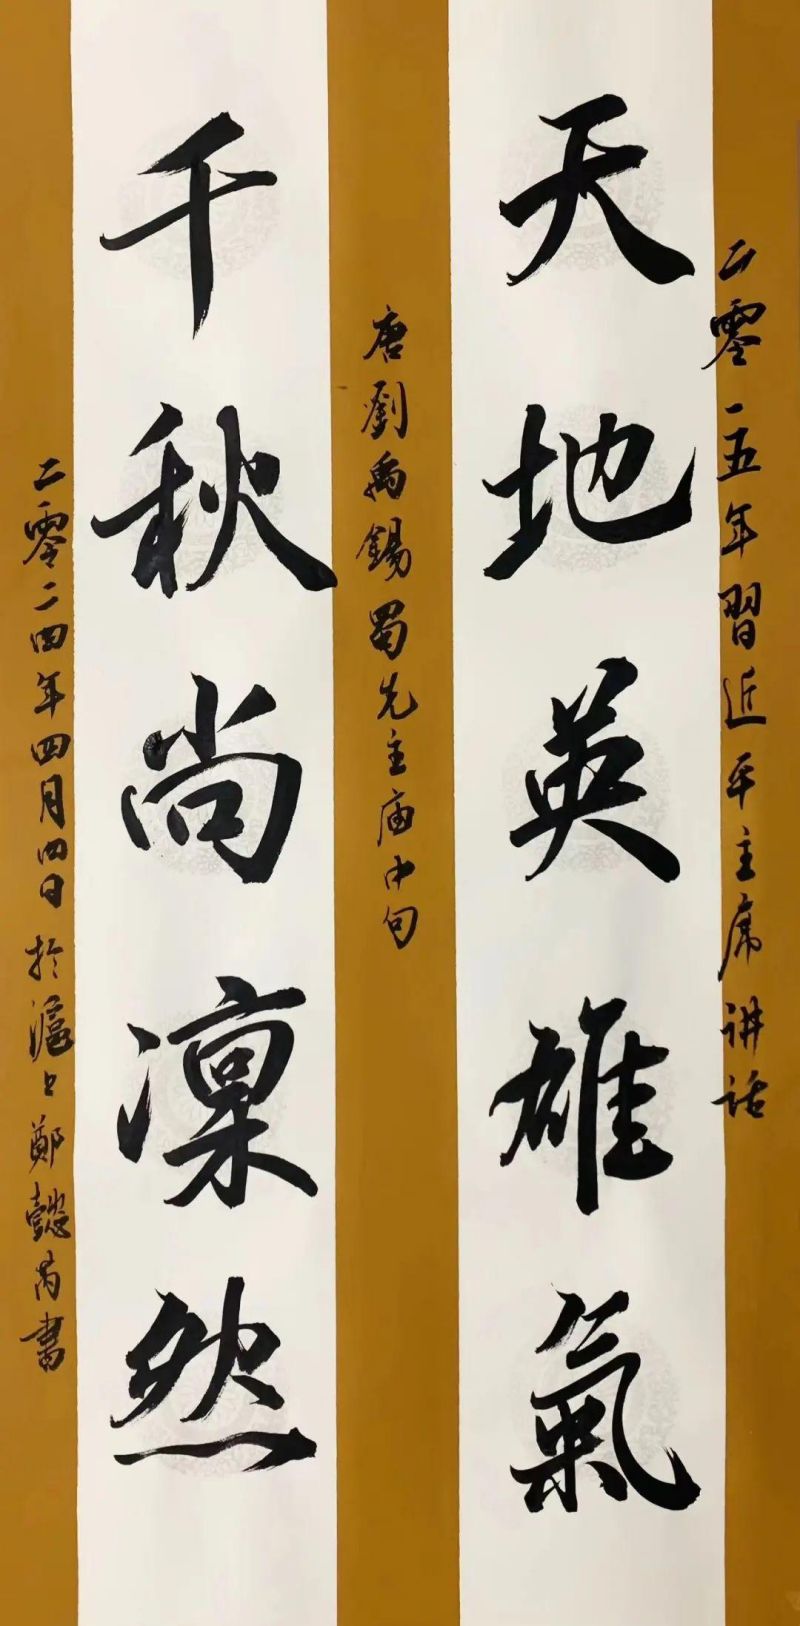 二零一五年習近平主席讲话
天地英雄氣
唐劉禹錫蜀先主庙中句
千秋尚凜然
二零二四年四月四日於滬上鄭懿芮書